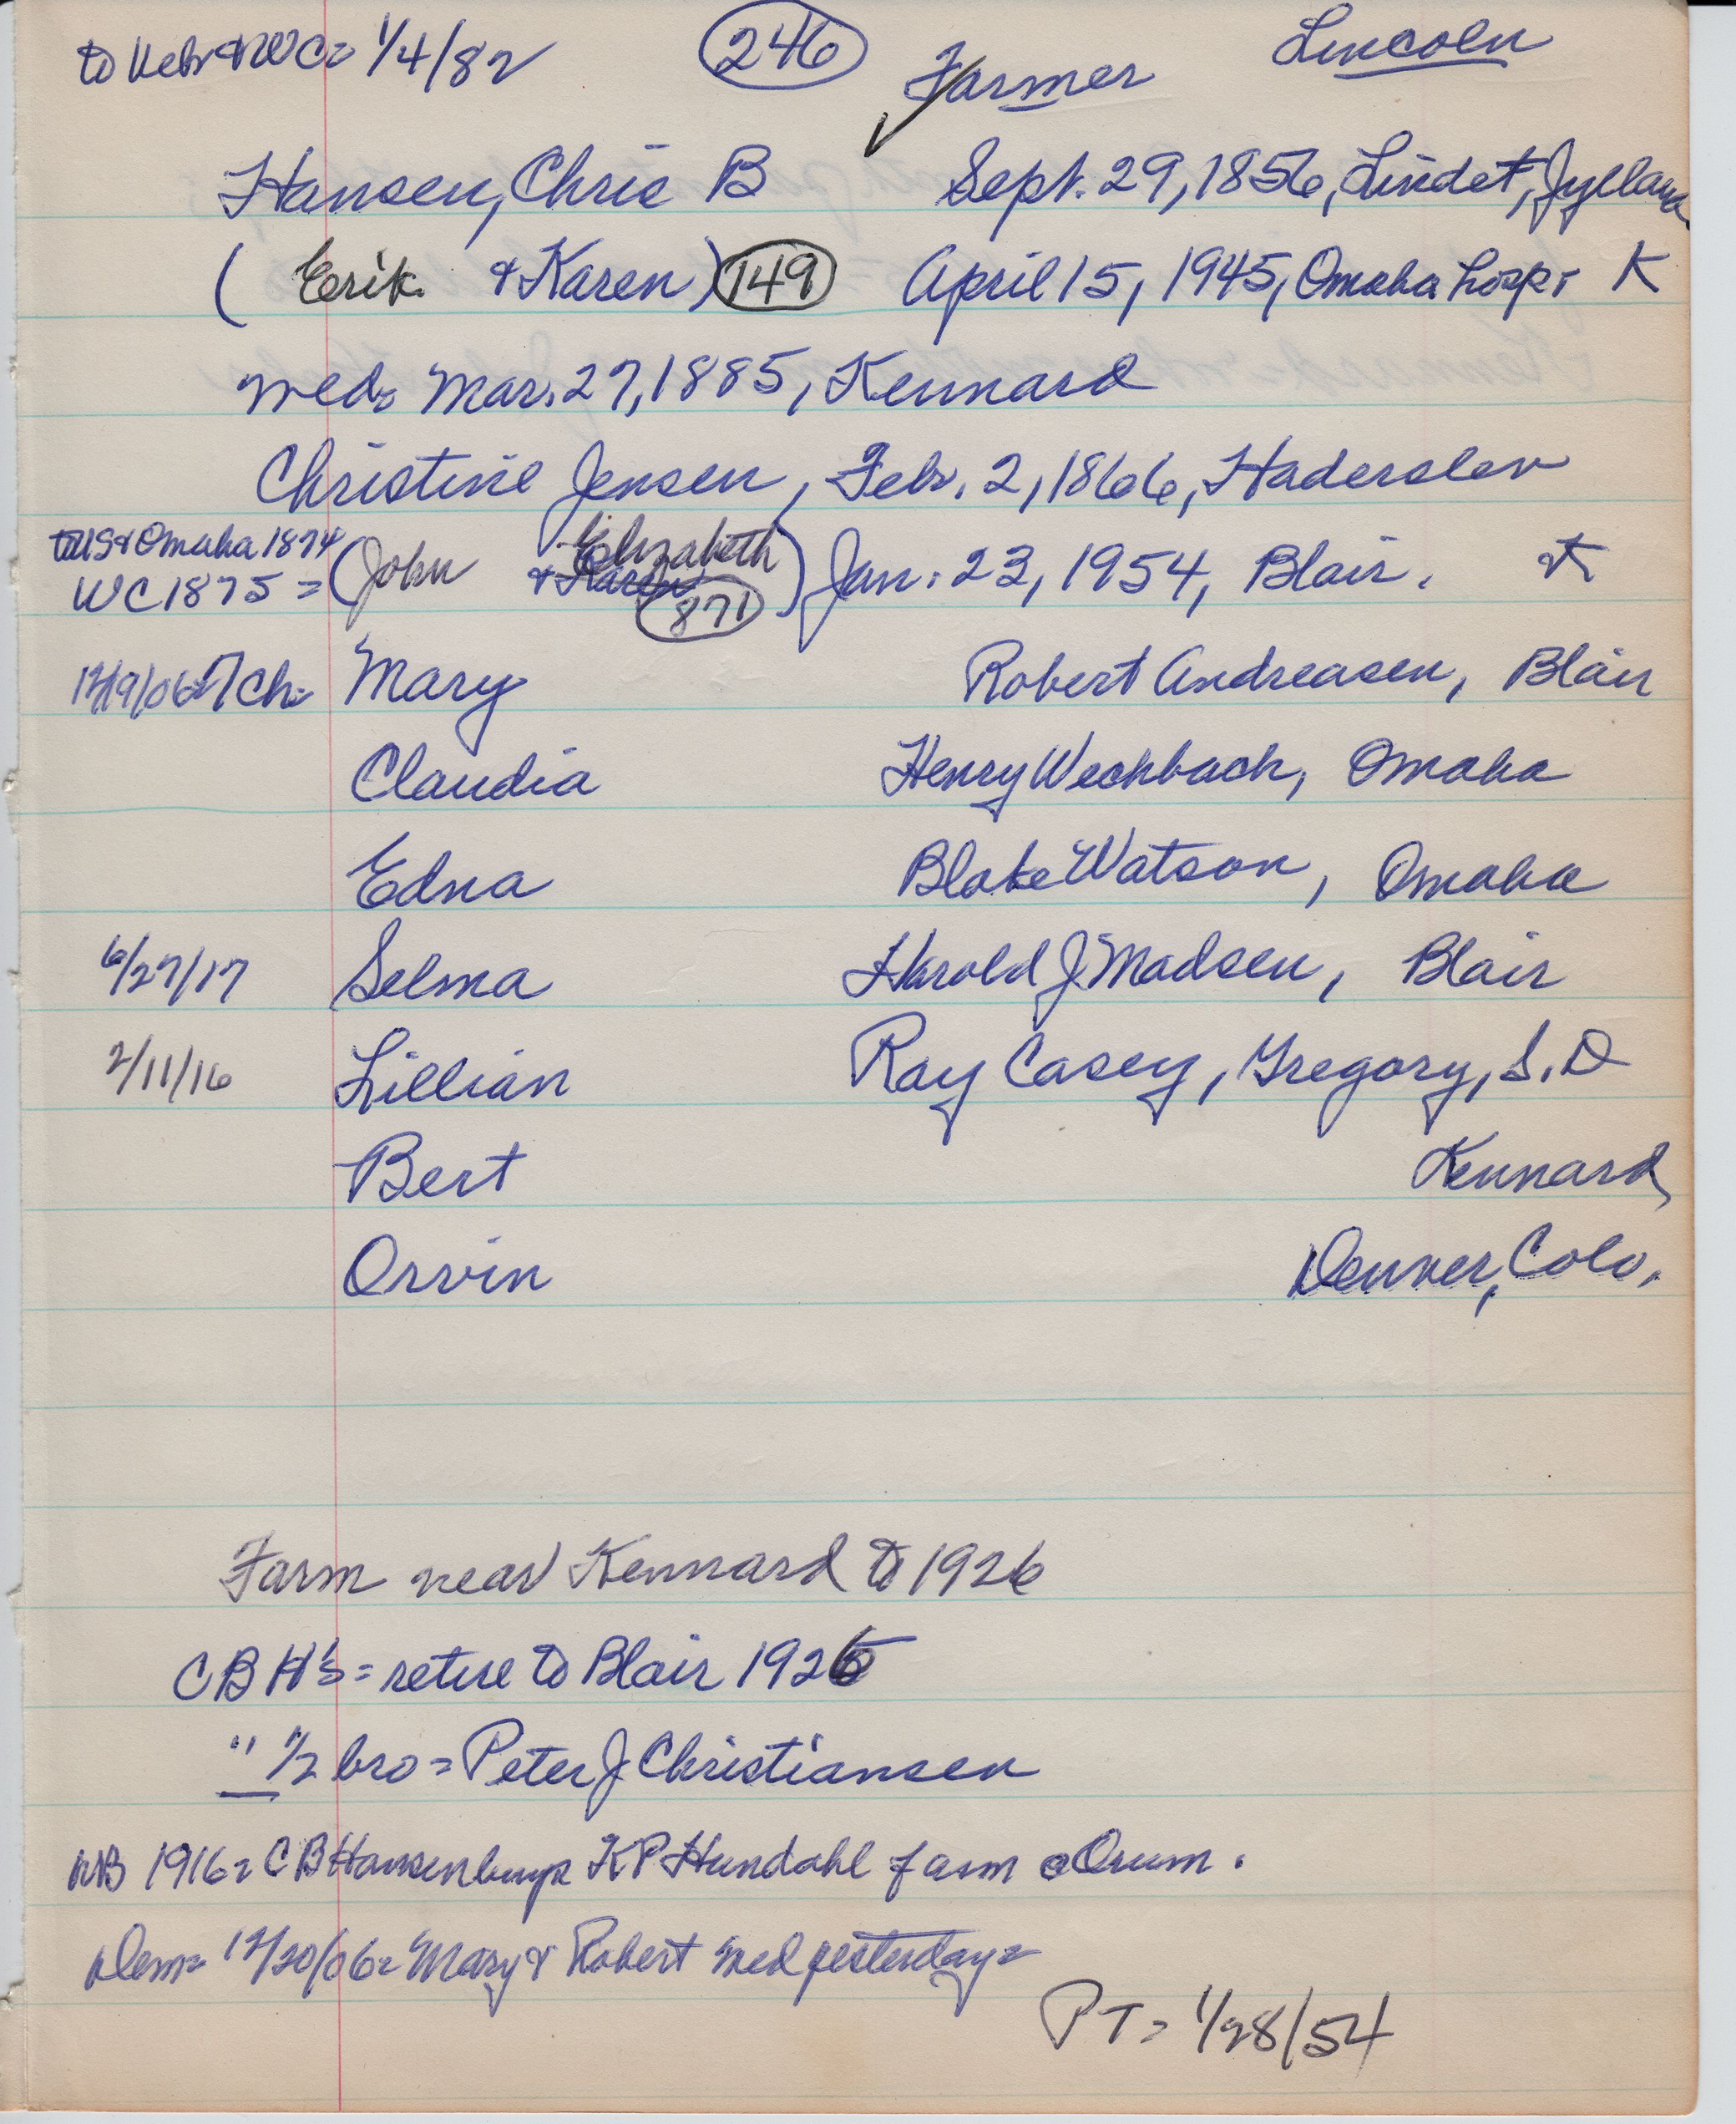 to Nebr & WC= 1/4/82 (246) Farmer Lincoln
Hansen, Chris B Sept. 29, 1856, Lindet, Jylland
( Erik & Karen ) (149) April 15, 1945, Omaha hosp. K
wed= Mar. 27, 1885, Kennard
Christine Jensen, Feb. 2, 1866, Haderslev
to US & Omaha 1874
WC 1875 = (John & Karen Elizabeth) Jan. 23, 1954, Blair. K
(871)
12/19/06 7 Ch= Mary Robert Andreasen, Blair
Claudia Henry Wechbach, Omaha
Edna Blake Watson, Omaha
6/27/17 Selma Harold J Madsen, Blair
2/11/16 Lillian Ray Casey, Gregory, S. D
Bert Kennard,
Orvin Denver, Colo.
Farm near Kennard to 1926
CBH's = retire to Blair 1926
" 1/2 bro = Peter J Christiansen
1916= CB Hansen buys KP Hundahl farm @ Orum.
Dem= 12/20/06= Mary & Robert wed yesterday=
PT= 1/28/54